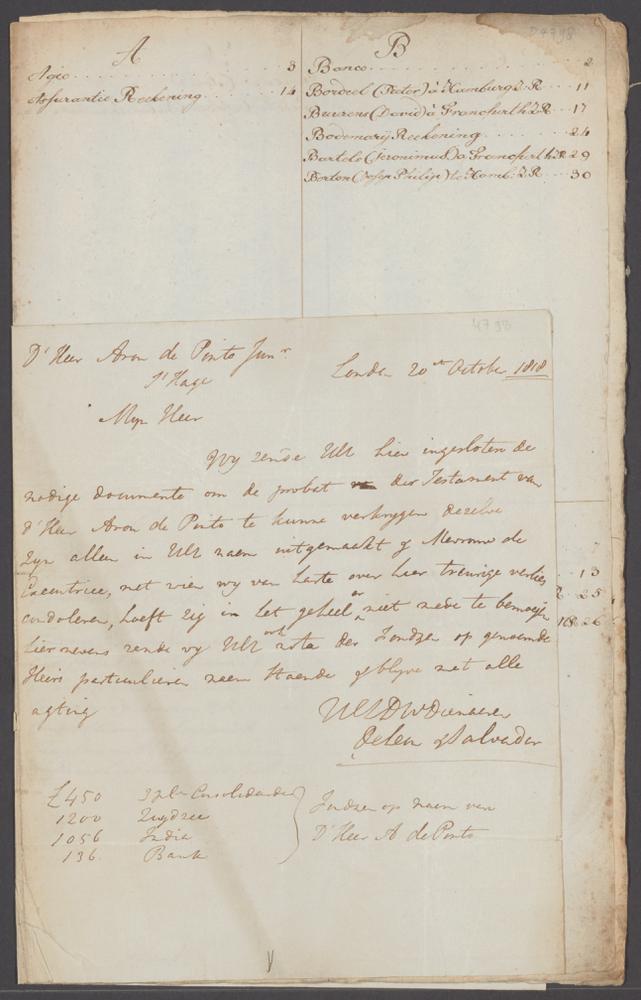 A
Agio 3
Assurantie Reekening 14
B
Banco 2
Bordeel (Pieter) à Hamburg L.R. 11
Buirens (David) à Francfurth L.R. 17
Bodemarij Reekening 24
Bartels (Jeronimus) à Francfurth L.R. 29
Berton (Josep Philip) te Hamb. L.R. 30
4798
D'Heer Aron de Pinto Junr
S'Hage
Londen 20st October 1818
Myn Heer
Wy zende UEd hier ingesloten de
nodige documente om de probat der Testament van
d'Heer Aron de Pinto te kunne verkrygen dezelve
zyn allen in UEd naem uitgemaekt & Mevrouw de
Executrice, met wien wy van harte over hier treurige verlies
condoleren, hoeft zig in het geheel er niet mede te bemoeije
hier nevens zende wy UEd ook nota der Fondsen op genoemde
Heers particuliere naem staende & blyve met alle
agting
UEd DW Dienaren
& Salvador
£450 3 pCt Consolideerde
1200 Zuydzee
1056 India
136 Bank
Fondsen op naem van
D'Heer A de Pinto
7
13
25
26